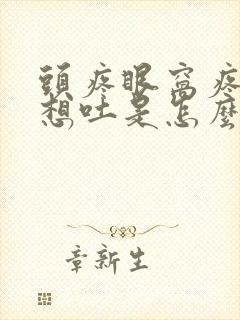 頭疼眼窩疼
想吐是怎麼
章新生